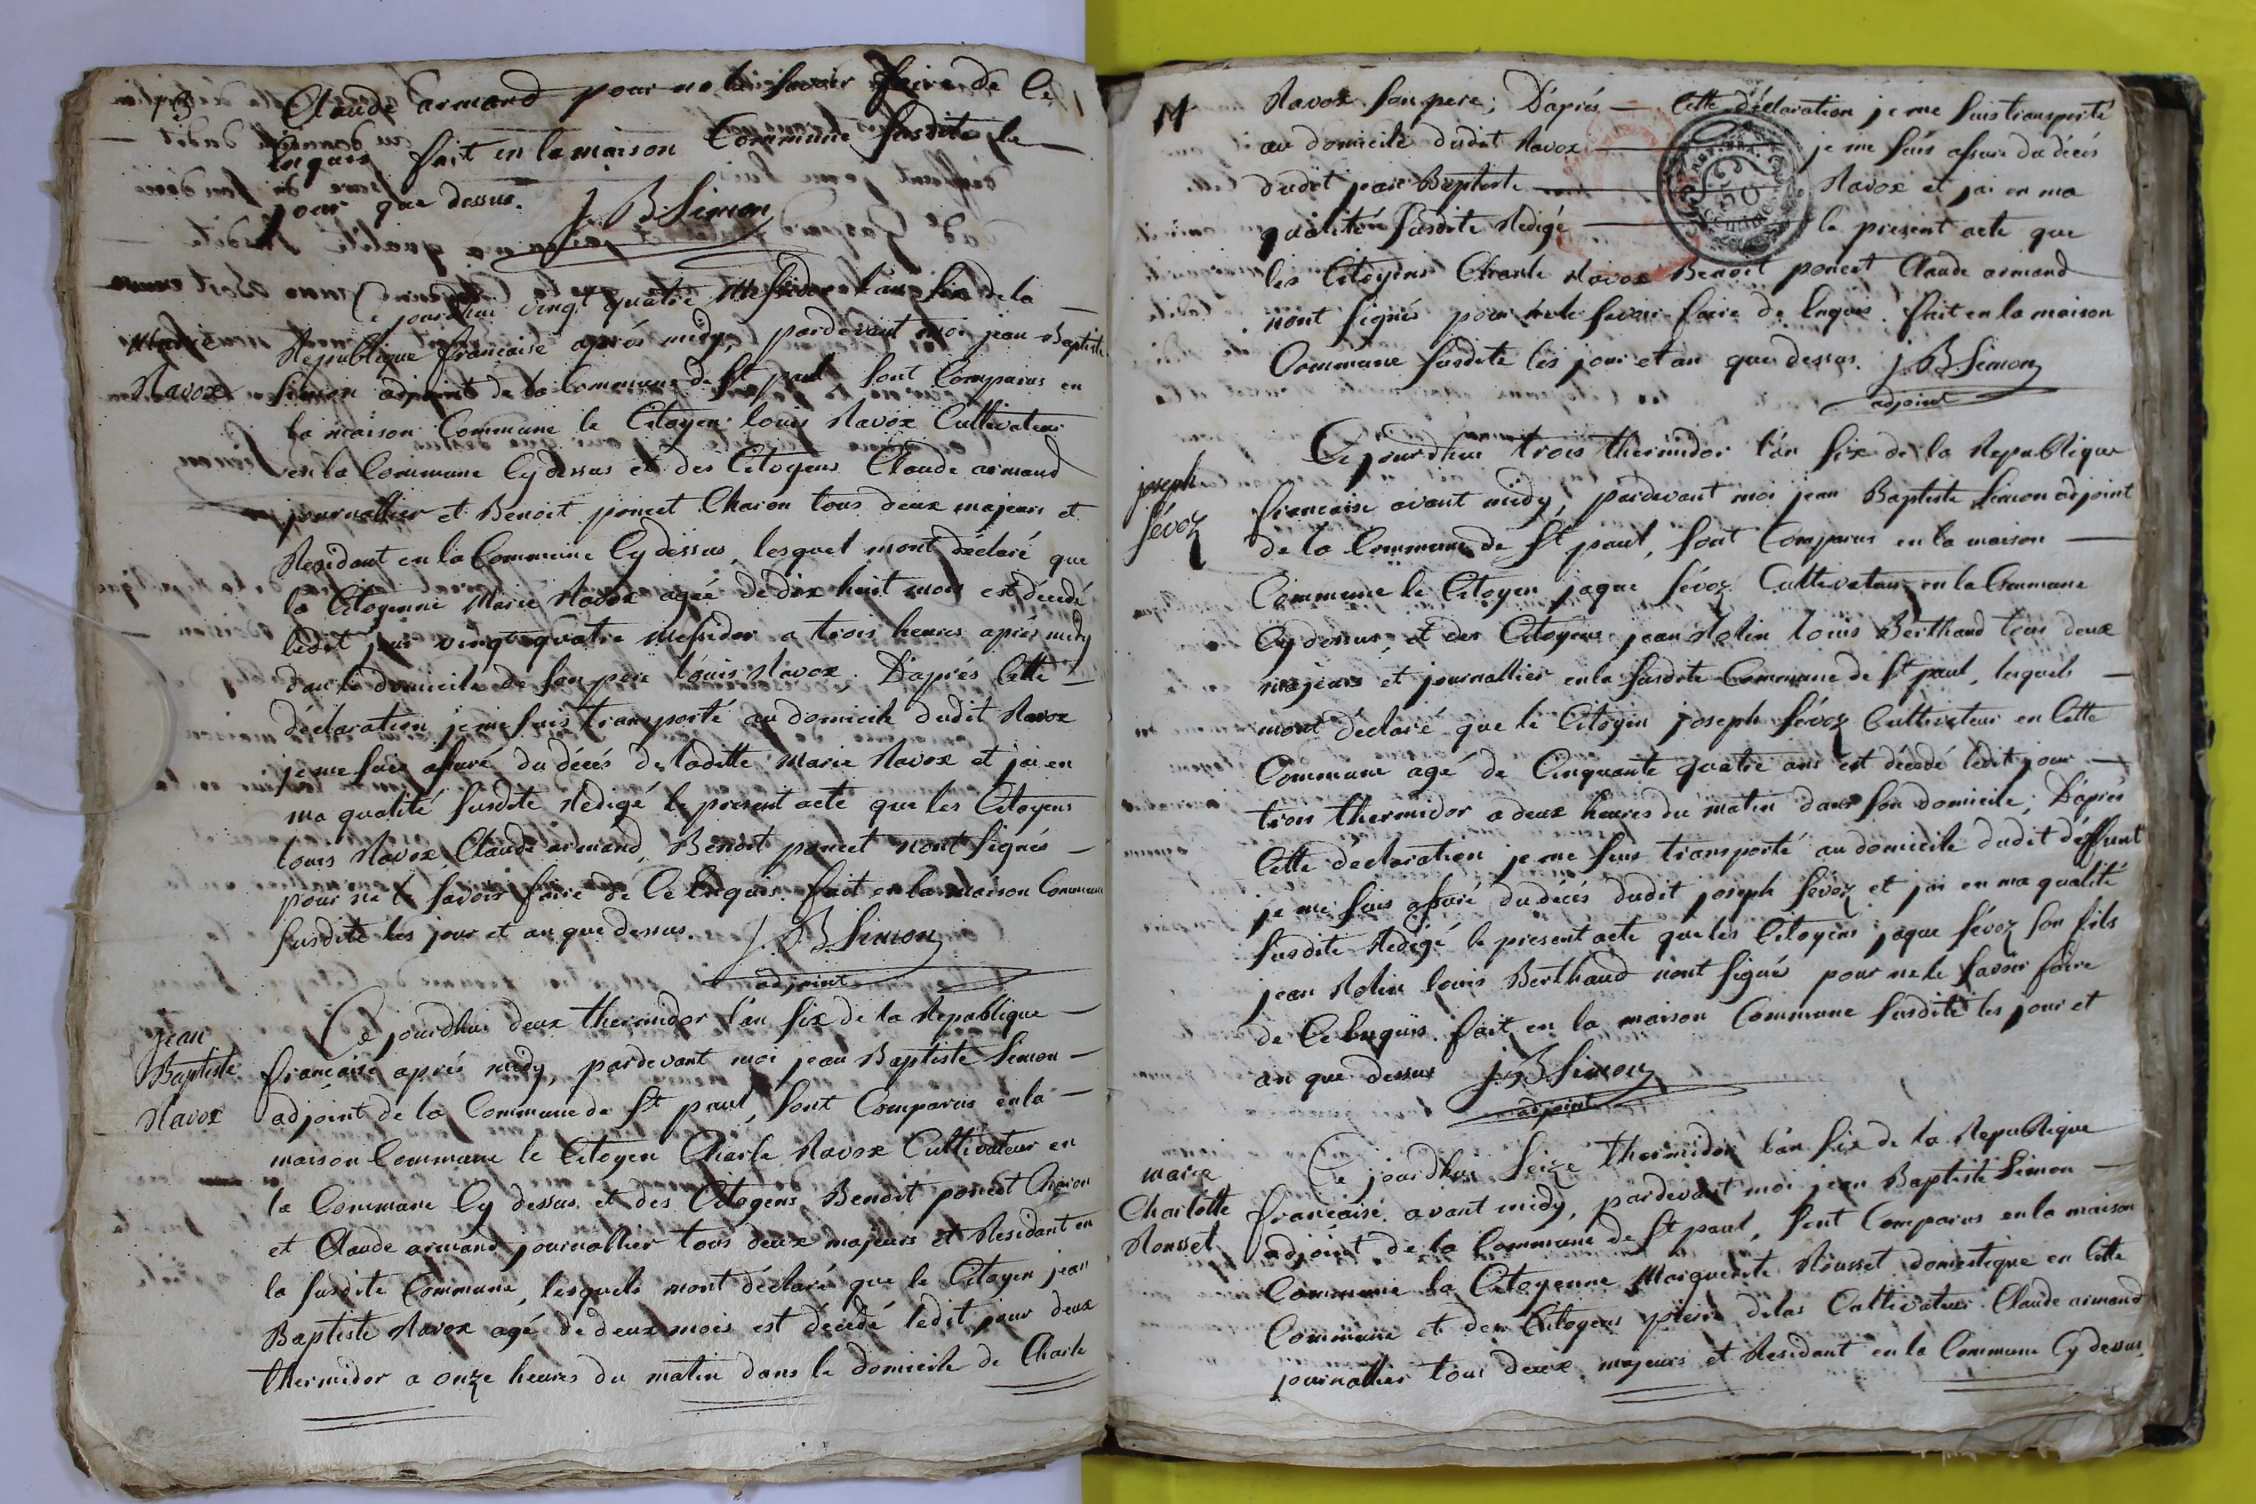 13
Claude armand pour ne le savoir faire de Ce
Enquis fait en la maison Commune susdite le
jour que dessus. J. B. Simon
Marie
Navox
Ce jourdhui vingt quatre Messidor l'an six de la
Republique francaise après midy, pardevant moi jean Baptiste
Simon adjoint de la Commune de St paul sont Comparus en
la maison Commune le Citoyen louis Navox Cultivateur
en la Commune Cy dessus et des Citoyens Claude armand
journallier et Benoit poncet Charon tous deux majeurs et
Residant en la Commune Cy dessus, lesquel mont déclaré que
la Citoyenne Marie Navox agée de dix huit mois est décedé
ledit jour vingt quatre Messidor a trois heures après midy
dans le domicile de son pere louis Navox. D'après Cette
déclaration je me suis transporté au domicile dudit Navox
je me suis assuré du décés de ladette Marie Navox et j'ai en
ma qualité susdite Redigé le present acte que les Citoyens
louis Navox Claude armand, Benoit poncet n'ont signés
pour ne le savoir faire de Ce Enquis. fait en la maison Commune
susdite les jour et an que dessus. J. B. Simon
adjoint
jean
Baptiste
Navox
Ce jourdhui deux thermidor l'an six de la Republique
francaise après midy, pardevant moi jean Baptiste Simon
adjoint de la Commune de St paul, sont Comparus en la
maison Commune le Citoyen Charle Navox Cultivateur en
la Commune Cy dessus et des Citoyens Benoit poncet Charon
et Claude armand journallier tous deux majeurs et Residant en
la susdite Commune, lesquels mont déclaré que le Citoyen jean
Baptiste Navox agé de deux mois est décedé ledit jour deux
thermidor a onze heures du matin dans le domicile de Charle
14
Navox son pere; D'après Cette déclaration je me suis transporté
au domicile dudit Navox je me suis assure du décés
dudit jean Baptiste Navox et j'ai en ma
qualité susdite Redigé le present acte que
les Citoyens Charle Navox Benoit poncet Claude armand
nont signés pour ne le savoir faire de Enquis. fait en la maison
Commune susdite les jour et an que dessus. J. B. Simon
adjoint
joseph
févoz
Ce jourdhui trois thermidor l'an six de la Republique
francaise avant midy, pardevant moi jean Baptiste Simon adjoint
de la Commune de St paul, sont Comparus en la maison
Commune le Citoyen jaque févoz Cultivateur en la Commune
Cy dessus, et des Citoyens jean Molin louis Berthaud tous deux
majeurs et journallier en la susdite Commune de St paul, lesquels
mont déclaré que le Citoyen joseph févoz Cultivateur en Cette
Commune agé de Cinquante quatre ans est décedé ledit jour
trois thermidor a deux heures du matin dans son domicile; D'après
Cette déclaration je me suis transporté au domicile dudit déffunt
je me suis assuré du décés dudit joseph févoz et j'ai en ma qualité
susdite Redigé le present acte que les Citoyens jaque févoz son fils
jean Molin louis Berthaud n'ont signés pour ne le savoir faire
de Ce Enquis. fait en la maison Commune susdite les jour et
an que dessus J. B. Simon
adjoint
marie
Charlotte
Rousset
Ce jourdhui seize thermidor l'an six de la Republique
francaise avant midy, pardevant moi jean Baptiste Simon
adjoint de la Commune de St paul, sont Comparus en la maison
Commune la Citoyenne Marguerite Rousset domestique en Cette
Commune et des Citoyens pierre delas Cultivateur Claude armand
journallier tous deux majeurs et Residant en la Commune Cy dessus,